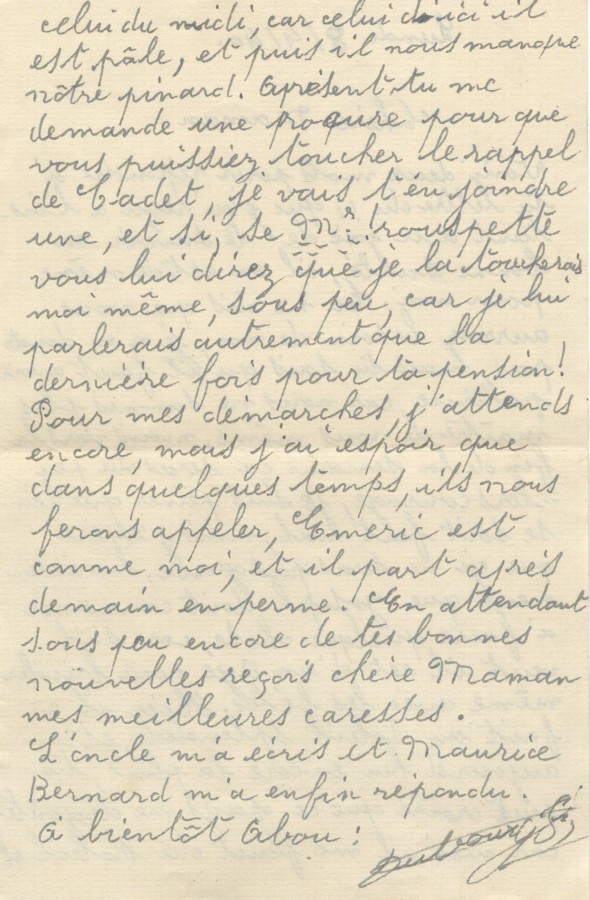 celui du midi, car celui d'ici il
est pâle, et puis il nous manque
nôtre pinard. Aprésent tu me
demande une procure pour que
vous puissiez toucher le rappel
de Cadet, je vais t'en joindre
une, et si, se Mr! rouspette
vous lui direz que je la toucherais
moi même, sous peu, car je lui
parlerais autrement que la
derniére fois pour ta pension!
Pour mes démarches, j'attends
encore, mais j'ai espoir que
dans quelques temps, ils nous
ferons appeler, Emeric est
comme moi, et il part aprés
demain en perme. En attendant
sous peu encore de tes bonnes
nouvelles reçois chére Maman
mes meilleures caresses.
L'oncle m'a écris et Maurice
Bernard m'a enfin répondu.
A bientôt Abou!